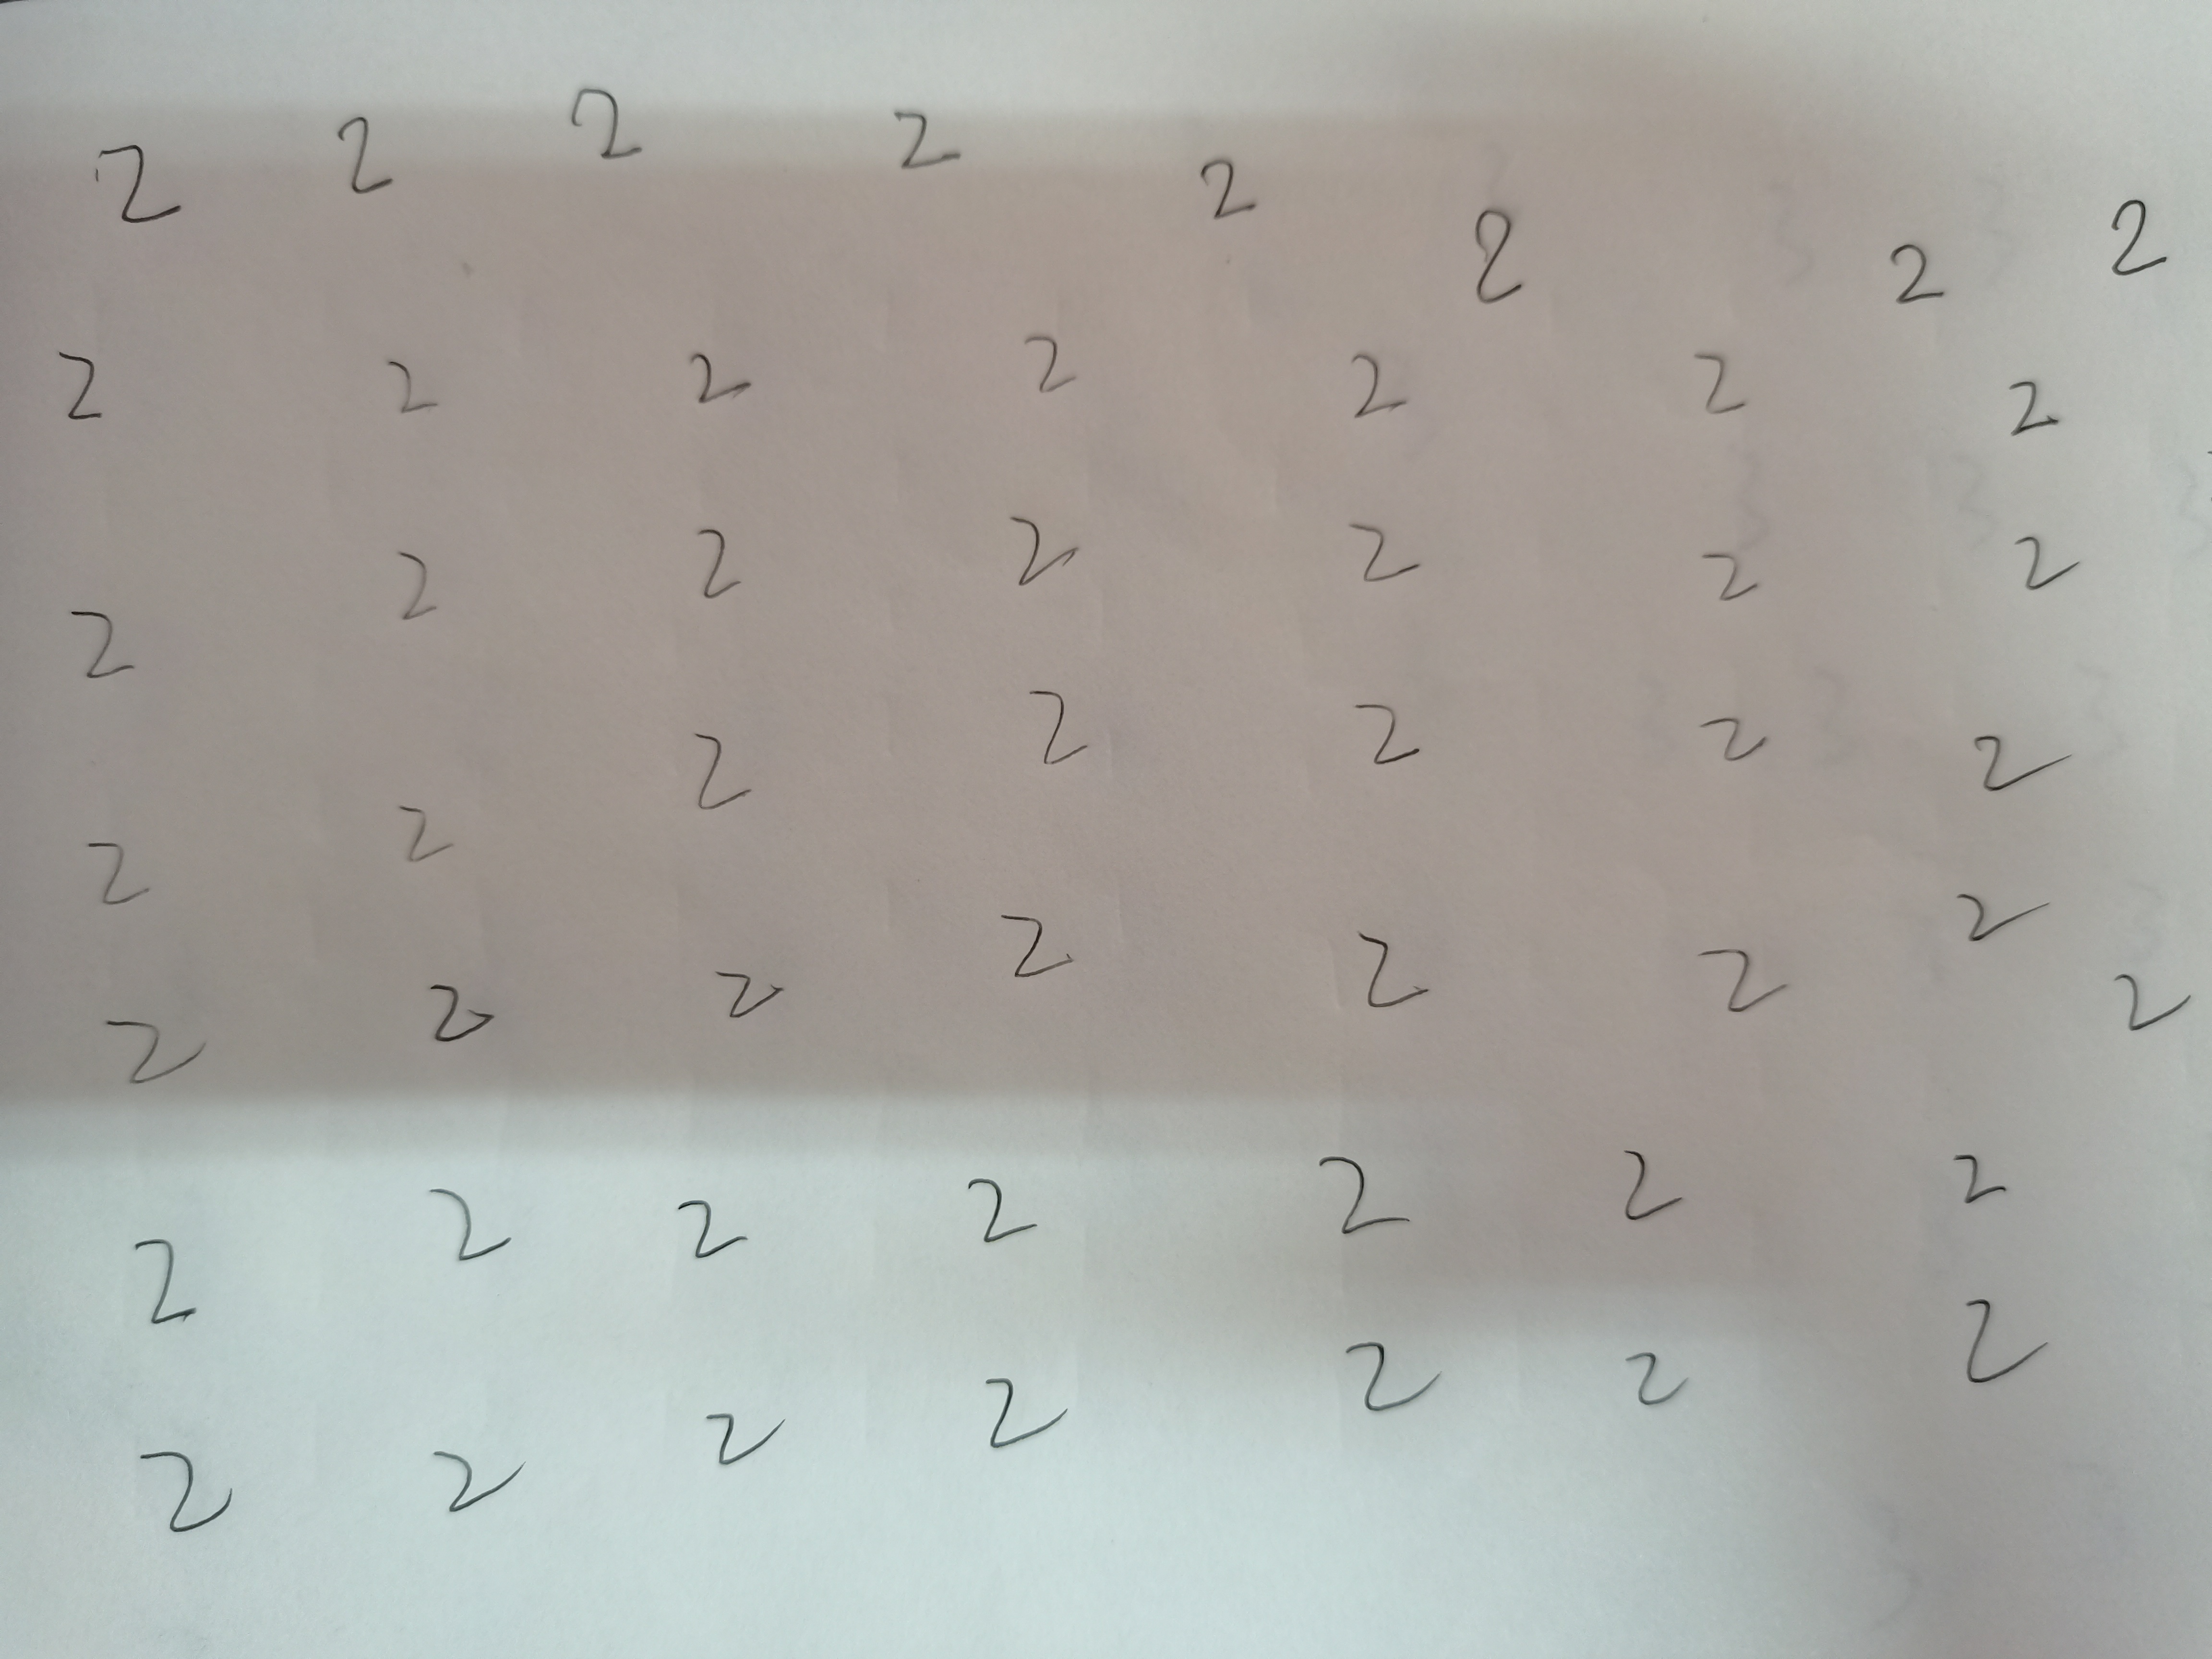 2 2 2 2 2 2 2 2
2 2 2 2 2 2 2
2 2 2 2 2 2 2
2 2 2 2 2 2 2
2 2 2 2 2 2 2 2
2 2 2 2 2 2 2
2 2 2 2 2 2 2